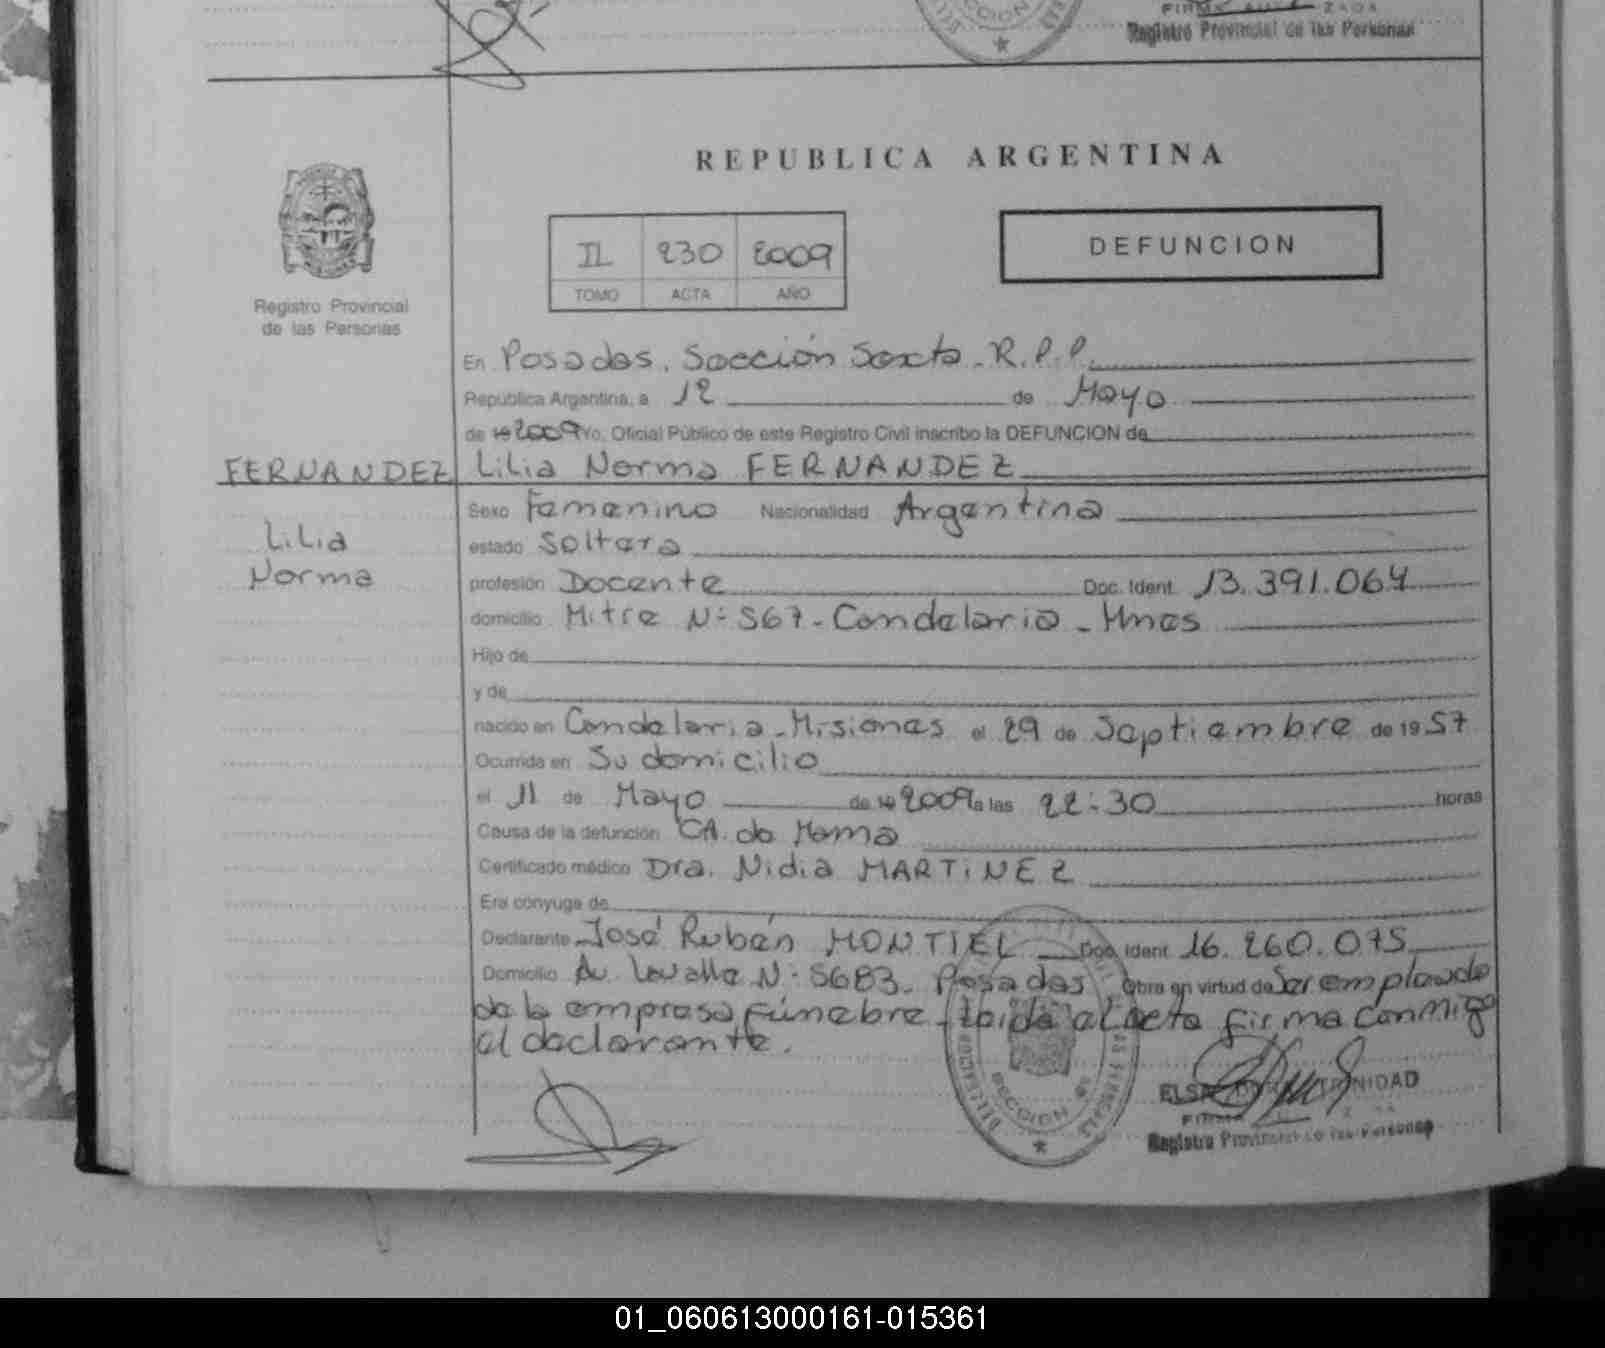 Registro Provincial de las Personas
REPUBLICA ARGENTINA
II 230 2009
TOMO ACTA AÑO
DEFUNCION
Registro Provincial
de las Personas
En Posadas. Sección Sexta. R.P.P.
República Argentina, a 12 de Mayo
de 19 2009 Yo, Oficial Público de este Registro Civil inscribo la DEFUNCION de
FERNANDEZ Lilia Norma FERNANDEZ
Lilia
Norma
Sexo Femenino Nacionalidad Argentina
estado Soltera
profesión Docente Doc. Ident. 13.391.064
domicilio Mitre N: 567 - Candelaria - Mnes
Hijo de
y de
nacido en Candelaria - Misiones el 29 de Septiembre de 1957
Ocurrida en Su domicilio
el 11 de Mayo de 19 2009 a las 22:30 horas
Causa de la defunción CA. de Mama
Certificado médico Dra. Nidia MARTINEZ
Era cónyuge de
Declarante José Rubén MONTIEL Doc. Ident. 16.260.075
Domicilio Av. Lavalle N: 5683. Posadas Obra en virtud de Ser empleado
de la empresa fúnebre - Leída el acta firma conmigo
el declarante.
TRINIDAD
Registro Provincial de las Personas
01_060613000161-015361